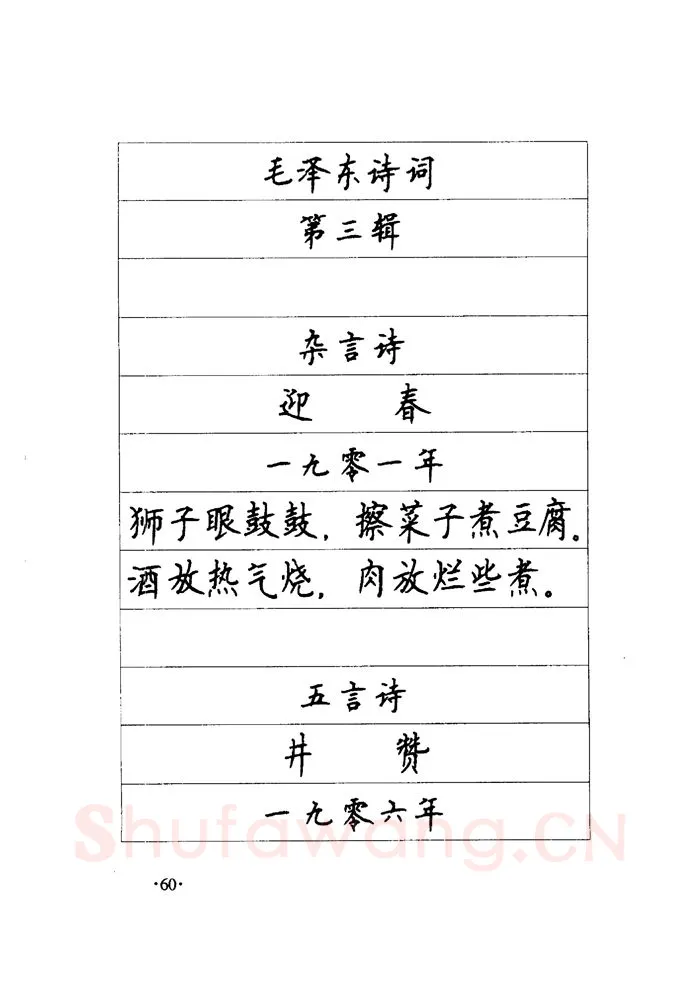 毛泽东诗词
第三辑
杂言诗
迎 春
一九零一年
狮子眼鼓鼓，擦菜子煮豆腐。
酒放热气烧，肉放烂些煮。
五言诗
井 赞
一九零六年
Shufawang.CN
·60·